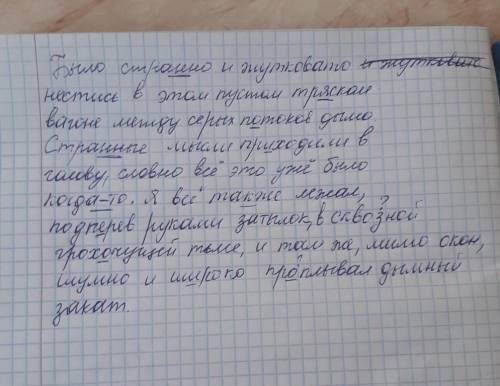 Было странно и жутковато и жутковато
нестись в этом пустом тряском
вагоне между серых потоков дыма.
Странные мысли приходили в
голову, словно всё это уже было
когда-то. Я всё также лежал,
подперев руками затылок, в сквозной
грохочущей тьме, и там же, мимо окон,
шумно и широко проплывал дымный
закат.